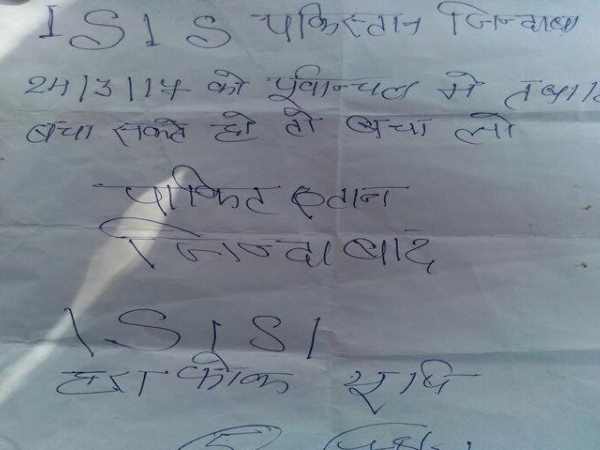 ISIS पकिस्तान जिन्दाबा
24/3/17 को पूर्वान्चल मे तबा
बचा सकते हो तो बचा लो
पाकिस्तान
जिन्दाबाद
ISIS